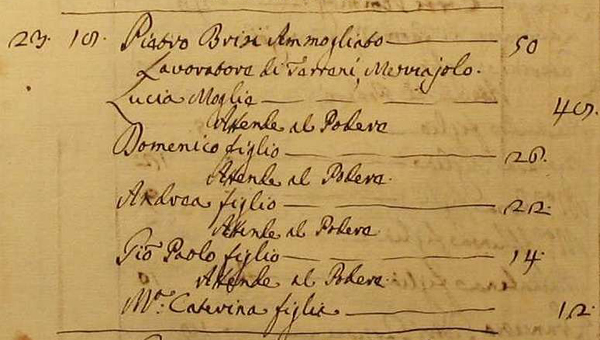 23. 19. Pietro Brisi Ammogliato 50
Lavoratore di Terreni, Merciajolo.
Lucia Moglie 49.
Attende al Podere
Domenico figlio 26.
Attende al Podere.
Andrea figlio 22
Attende al Podere
Gio: Paolo figlio 14
Attende al Podere.
Mª. Caterina figlia 12.